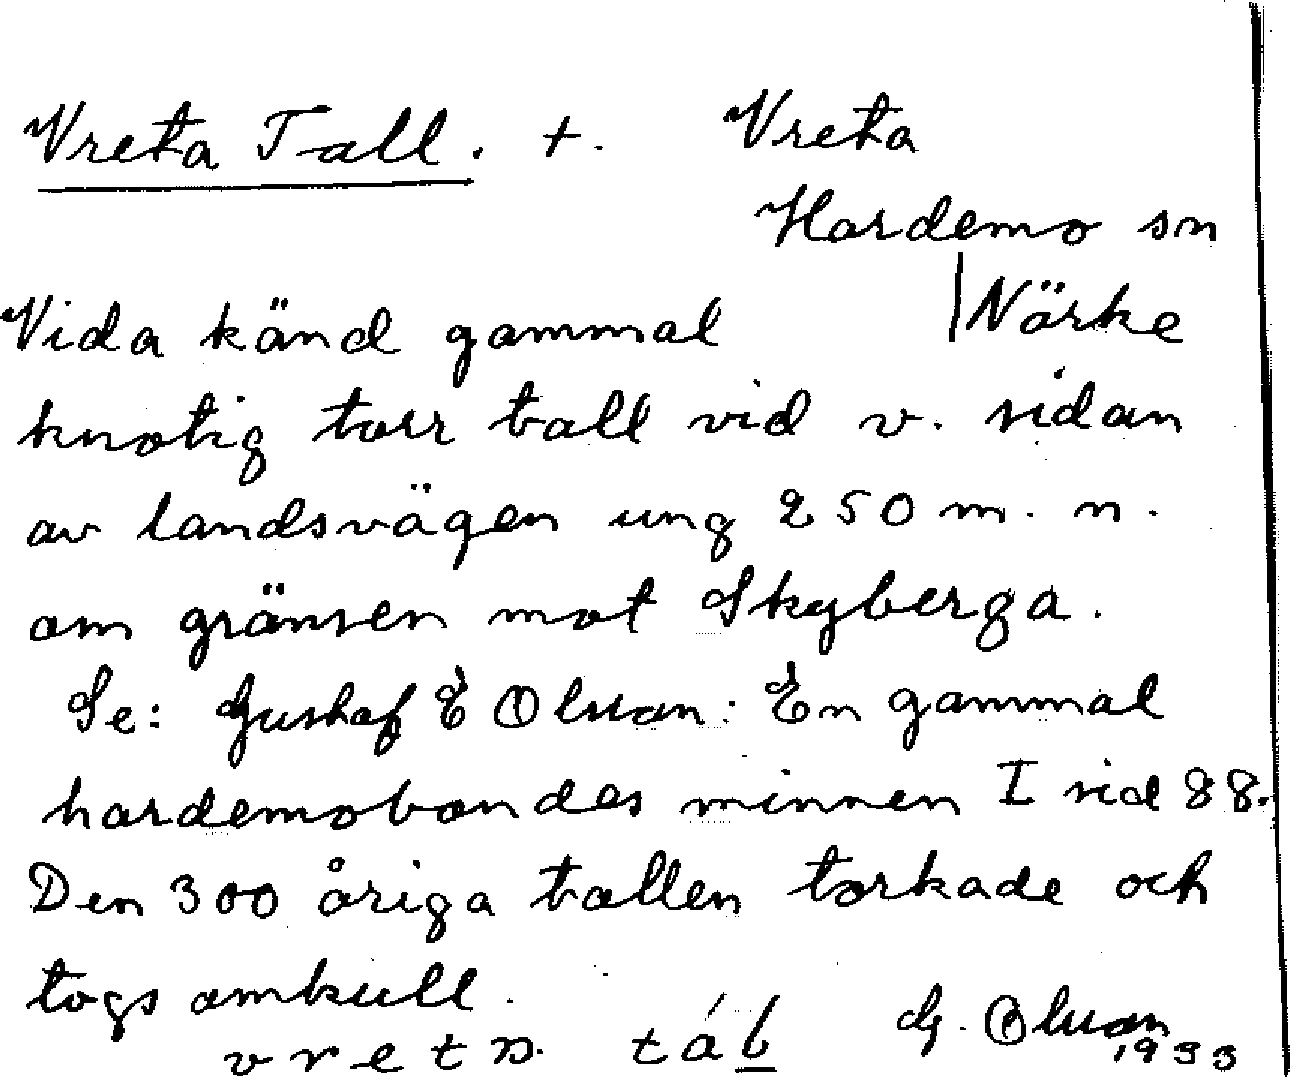 Vreta Tall. +. Vreta
Hardemo sn
Närke
Vida känd gammal
knotig torr tall vid v. sidan
av landsvägen ung 250 m. n.
om gränsen mot Skyberga.
Se: Gustaf E Olsson: En gammal
hardemobondes minnen I sid 88.
Den 300 åriga tallen torkade och
togs omkull.
G. Olsson
1933